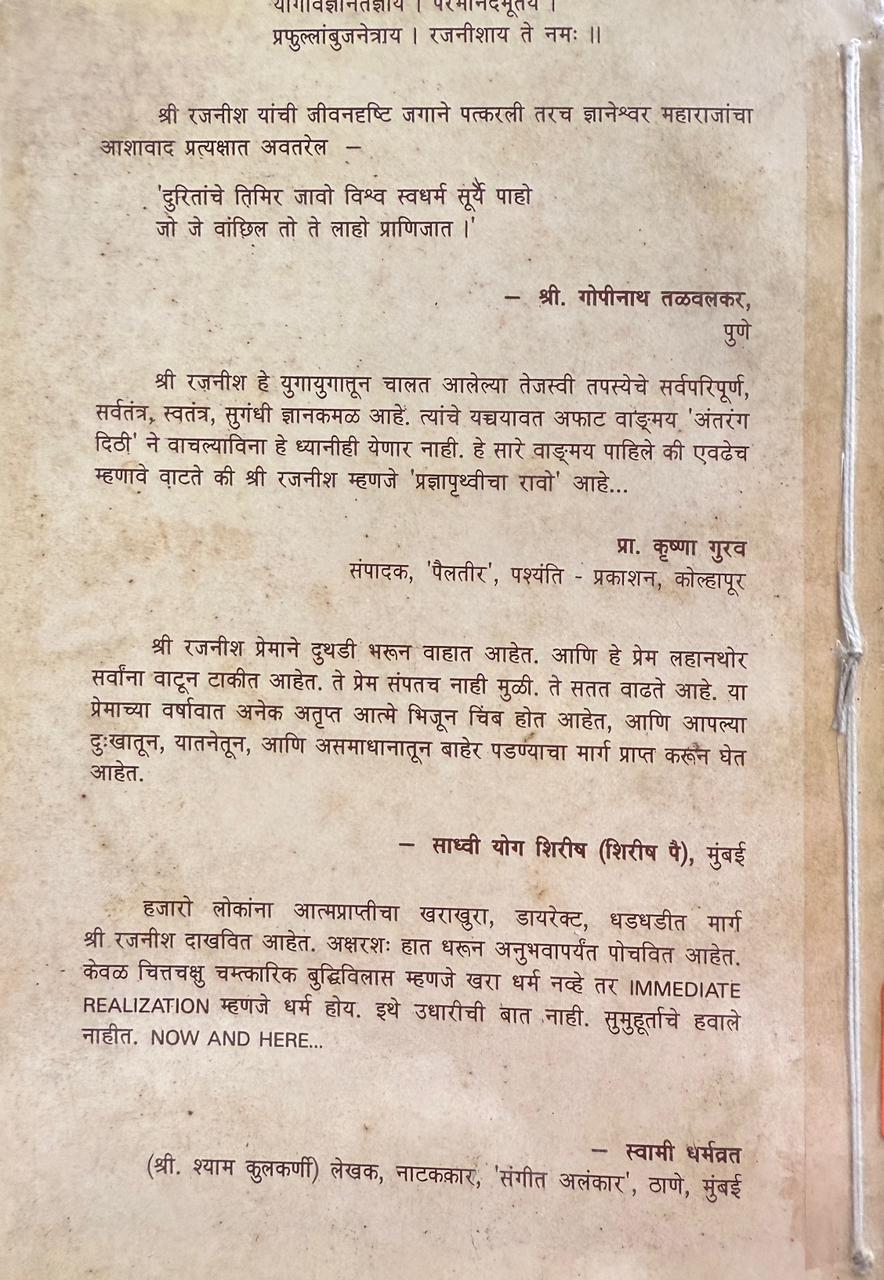 योगविज्ञानतज्ञाय । परमानंदमूर्तये ।
प्रफुल्लांबुजनेत्राय । रजनीशाय ते नमः ॥
श्री रजनीश यांची जीवनदृष्टि जगाने पत्करली तरच ज्ञानेश्वर महाराजांचा
आशावाद प्रत्यक्षात अवतरेल –
'दुरितांचे तिमिर जावो विश्व स्वधर्म सूर्ये पाहो
जो जे वांछिल तो ते लाहो प्राणिजात ।'
– श्री. गोपीनाथ तळवलकर,
पुणे
श्री रजनीश हे युगायुगातून चालत आलेल्या तेजस्वी तपस्येचे सर्वपरिपूर्ण,
सर्वतंत्र, स्वतंत्र, सुगंधी ज्ञानकमळ आहे. त्यांचे यच्चयावत अफाट वाङ्‌मय 'अंतरंग
दिठी' ने वाचल्याविना हे ध्यानीही येणार नाही. हे सारे वाङ्‌मय पाहिले की एवढेच
म्हणावे वाटते की श्री रजनीश म्हणजे 'प्रज्ञापृथ्वीचा रावो' आहे...
प्रा. कृष्णा गुरव
संपादक, 'पैलतीर', पश्यंति - प्रकाशन, कोल्हापूर
श्री रजनीश प्रेमाने दुथडी भरून वाहात आहेत. आणि हे प्रेम लहानथोर
सर्वांना वाटून टाकीत आहेत. ते प्रेम संपतच नाही मुळी. ते सतत वाढते आहे. या
प्रेमाच्या वर्षावात अनेक अतृप्त आत्मे भिजून चिंब होत आहेत, आणि आपल्या
दुःखातून, यातनेतून, आणि असमाधानातून बाहेर पडण्याचा मार्ग प्राप्त करून घेत
आहेत.
– साध्वी योग शिरीष (शिरीष पै), मुंबई
हजारो लोकांना आत्मप्राप्तीचा खराखुरा, डायरेक्ट, धडधडीत मार्ग
श्री रजनीश दाखवित आहेत. अक्षरशः हात धरून अनुभवापर्यंत पोचवित आहेत.
केवळ चित्तचक्षु चमत्कारिक बुद्धिविलास म्हणजे खरा धर्म नव्हे तर IMMEDIATE
REALIZATION म्हणजे धर्म होय. इथे उधारीची बात नाही. सुमुहूर्ताचे हवाले
नाहीत. NOW AND HERE...
– स्वामी धर्मव्रत
(श्री. श्याम कुलकर्णी) लेखक, नाटककार, 'संगीत अलंकार', ठाणे, मुंबई